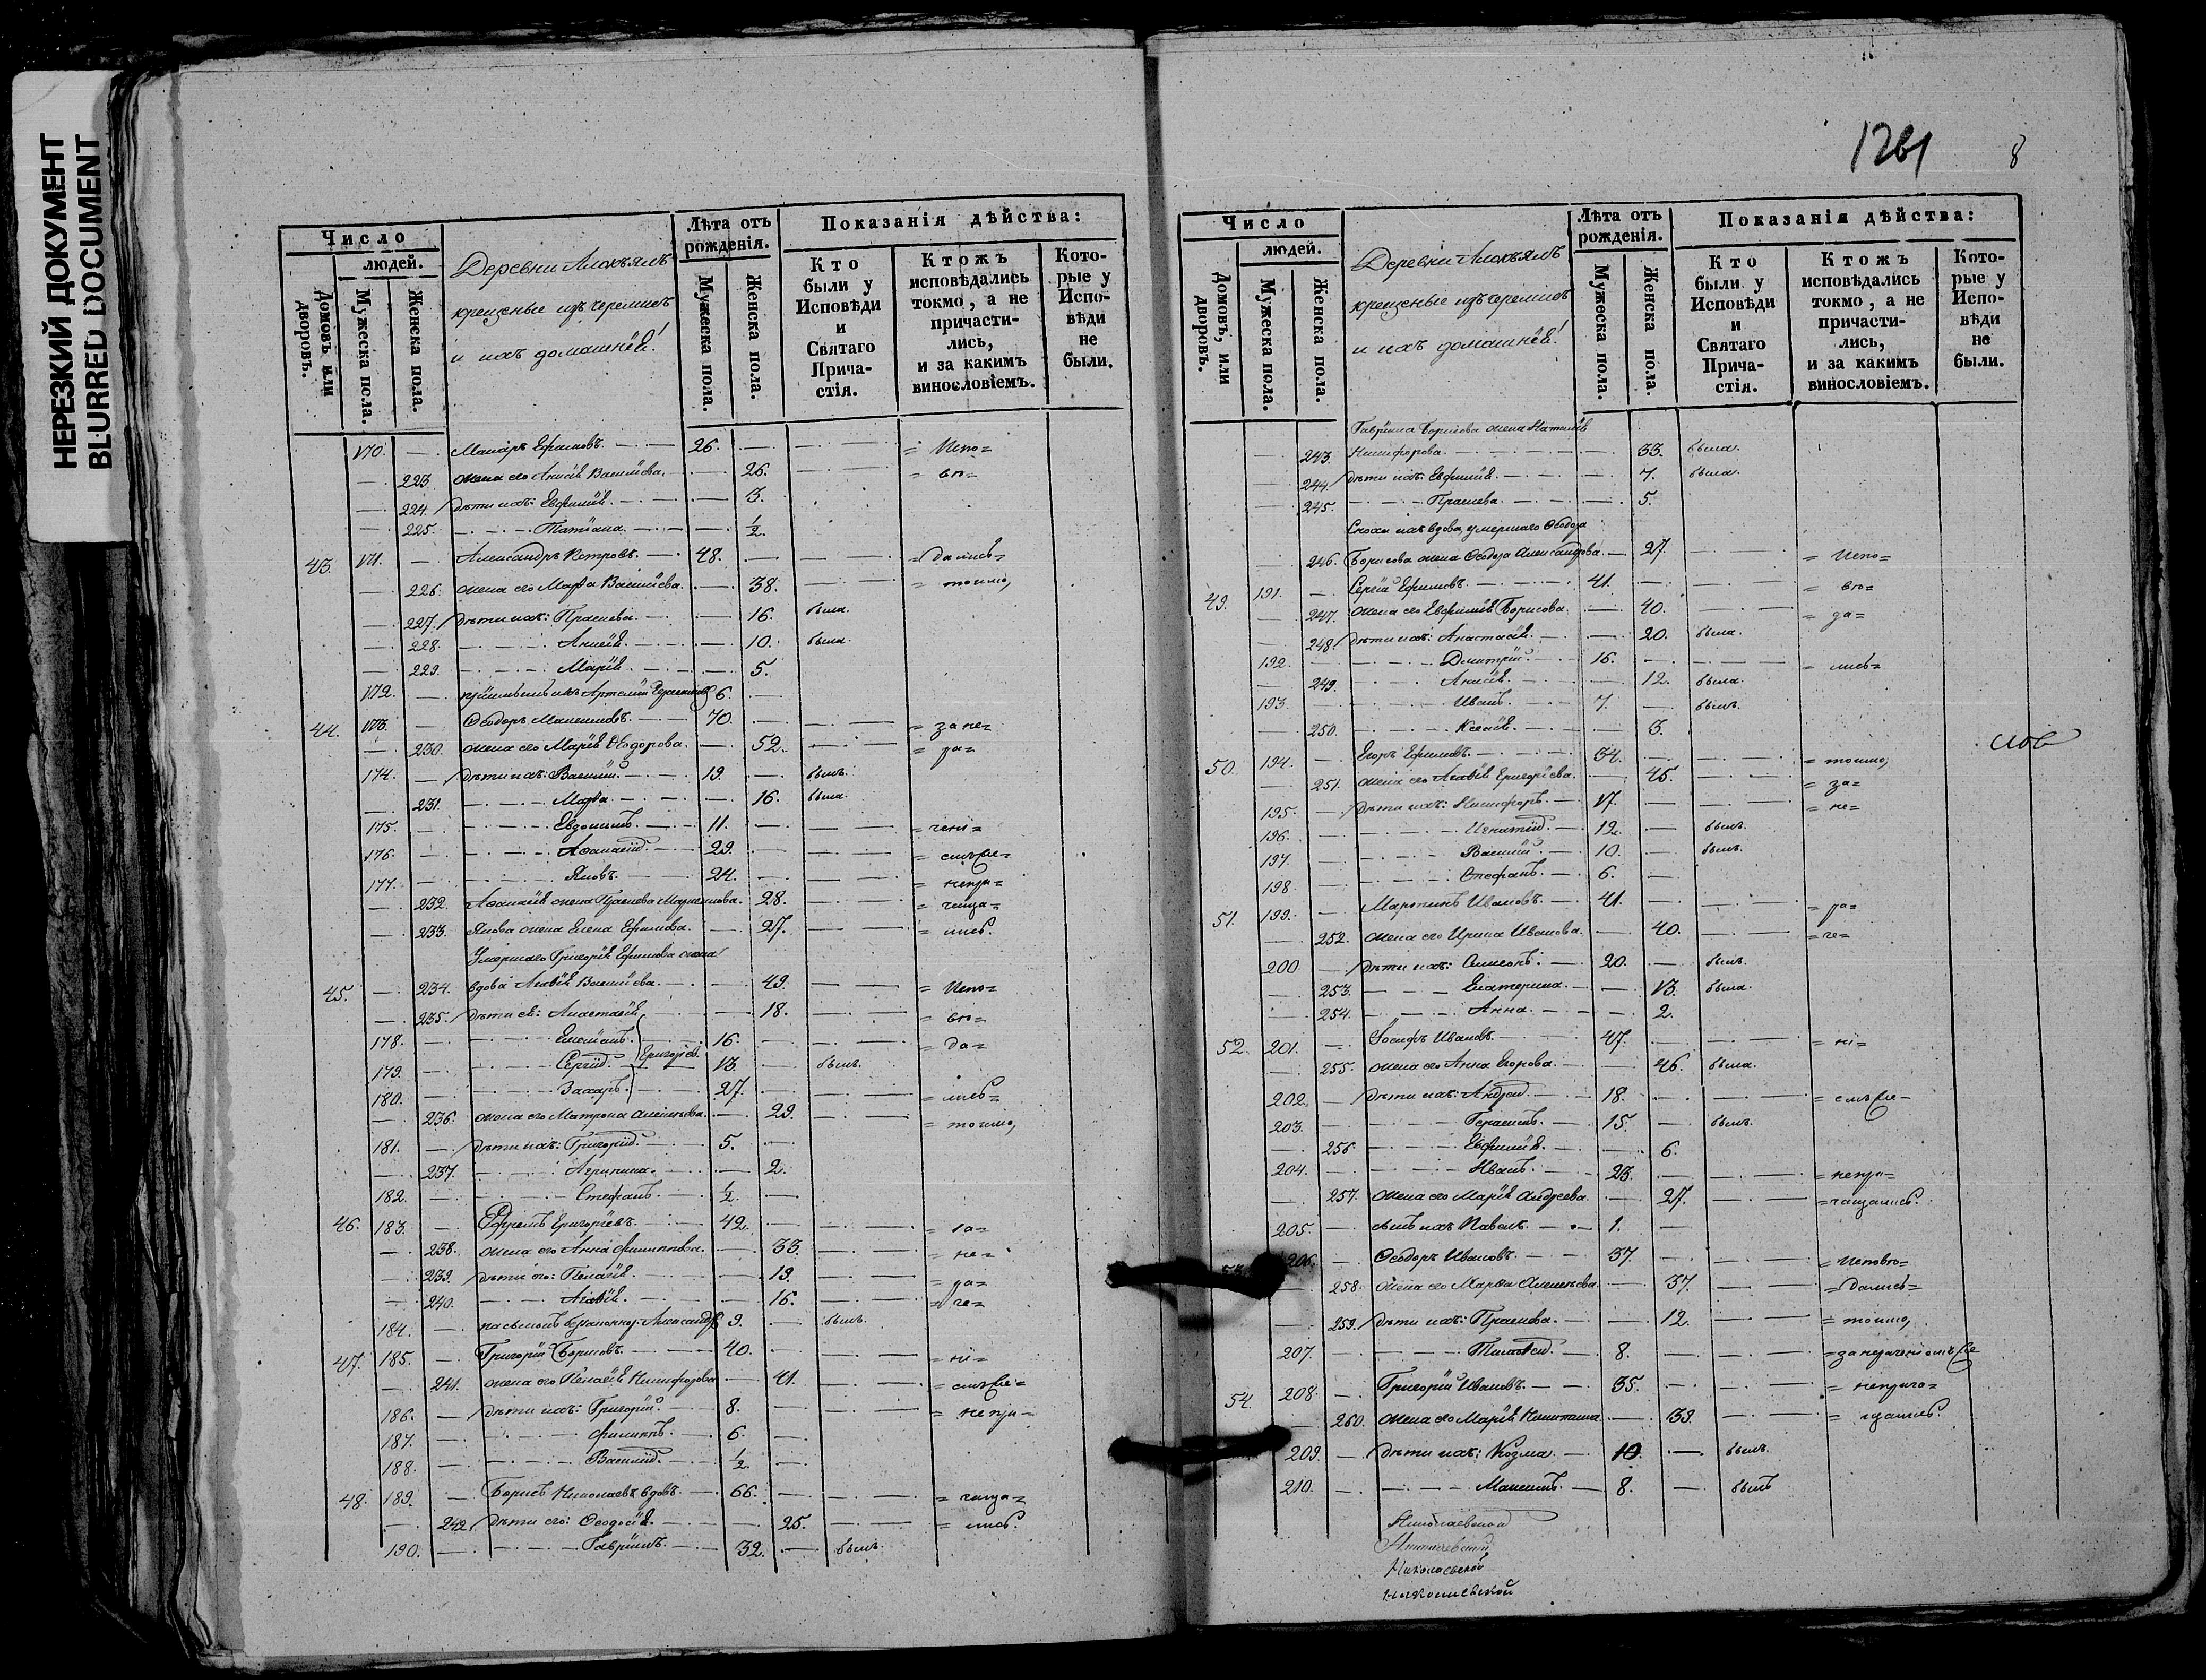 НЕРЕЗКИЙ ДОКУМЕНТ
BLURRED DOCUMENT
Число
людей.
Домовъ или дворовъ.
Мужеска пола.
Женска пола.
Деревни
крещеные изъ черемисъ
и ихъ домашнѣе!
Лѣта отъ рожденія.
Мужеска пола.
Женска пола.
Показанія дѣйства:
Кто были у Исповѣди и Святаго Прича-стія.
Ктожъ исповѣдались токмо, а не причасти-лись, и за какимъ винословіемъ.
Кото-рые у Испо-вѣди не были.
170. Ефимовъ. 26. = Испо=
223. жена его Анисія Васильева. 26. = вѣ=
224. дѣти ихъ: Евфимія. 3.
225. Татіана. 1/2.
43. 171. Александръ Петровъ. 48. = дались=
226. жена его Марфа Васильева. 38. = токмо,
227. дѣти ихъ: Праскева. 16. была.
228. Анисія. 10. была.
229. Марія. 5.
172. Артемій 6.
44. 173. Ѳеодоръ Максимовъ. 70. = за не=
230. жена его Марія Ѳеодорова. 52. = ра=
174. дѣти ихъ: Василій. 19. былъ.
231. Марфа. 16. была.
175. Евдокимъ. 11. = чені=
176. Аѳанасій. 29. = емъ
177. Яковъ. 24. = непри=
232. Аѳанасія жена Праскева 28. = чаща=
233. Якова жена Елена Ефимова. 27. = лись.
Умершаго Григорія Ефимова жена
45. 234. вдова Агафія Васильева. 49. = Испо=
235. дѣти ея: Анастасія 18. = вѣ=
178. Емеліанъ. 16. = да=
179. Сергій. Григорьев. 13. былъ.
180. Захаръ. 27. = лись=
236. жена его Матрона Алексѣева. 29. = токмо,
181. дѣти ихъ: Григорій. 5.
237. Агрипина. 2.
182. Стефанъ. 1/2.
46. 183. Ефремъ Григорьевъ. 42. = за=
238. жена его Анна Филиппова. 33. = не=
239. дѣти его: Пелагія. 19. = ра=
240. Агафія. 16. = че=
184. Александръ 9. былъ.
47. 185. Григорій Борисовъ. 40. = ні=
241. жена его Пелагія Никифорова 41. = емъ
186. дѣти ихъ: Григорій. 8. = непри=
187. Филиппъ. 6.
188. Василій. 1/2.
48. 189. Борисъ Николаевъ вдовъ. 66. = чаща=
242. дѣти его: Ѳеодосія. 25. = лись.
190. Гавріилъ. 32. былъ.
1261
8
Число
людей.
Домовъ, или дворовъ.
Мужеска пола.
Женска пола.
Деревни
крещеные изъ черемисъ
и ихъ домашнѣе!
Лѣта отъ рожденія.
Мужеска пола.
Женска пола.
Показанія дѣйства:
Кто были у Исповѣди и Святаго Прича-стія.
Ктожъ исповѣдались токмо, а не причасти-лись, и за какимъ винословіемъ.
Кото-рые у Испо-вѣди не были.
Гавріила Борисова жена Наталія
243. Никифорова. 33. была.
244. дѣти ихъ: Евфимія. 7. была.
245. Праскева. 5.
Сноха ихъ вдова, умершаго Ѳеодора
246. Борисова жена Ѳеодора Александрова. 27. = Испо=
49. 191. Сергій Ефимовъ. 41. = вѣ=
247. жена его Евфимія Борисова. 40. = да=
248. дѣти ихъ: Анастасія. 20. была.
192. Дмитрій. 16. = лись=
249. Анисія. 12. была.
193. Иванъ. 7. былъ.
250. Ксенія. 3.
50. 194. Егоръ Ефимовъ. 34. = токмо,
251. жена его Агафія Григорьева. 45. = за=
195. дѣти ихъ: Никифоръ. 17. = не=
196. Игнатій. 12. былъ.
197. Василій. 10. былъ.
198. Стефанъ. 6.
51. 199. Мартинъ Ивановъ. 41. = ра=
252. жена его Ирина Иванова. 40. = че=
200. дѣти ихъ: Симеонъ. 20. былъ.
253. Екатерина. 13. была.
254. Анна. 2.
52. 201. Іосифъ Ивановъ. 47. = ні=
255. жена его Анна Егорова. 46. была.
202. дѣти ихъ: Андрей. 18. = емъ
203. Герасимъ. 15. былъ.
256. Евфимія. 6.
204. Иванъ. 28. = непри=
257. жена его Марія Андреева. 27. = чащались.
205. сынъ ихъ Павелъ. 1.
53. 206. Ѳеодоръ Ивановъ. 37. = Исповѣ=
258. жена его Марфа Алексѣева. 37. = дались=
259. дѣти ихъ: Праскева. 12. = токмо,
207. Тимофей. 8. = за нераченіемъ
54. 208. Григорій Ивановъ. 35. = неприча=
260. жена его Марія Никитина. 39. = щались.
209. дѣти ихъ: Козма. 10. былъ.
210. Максимъ. 8. былъ
Николаевской
Николаевской
Николаевской